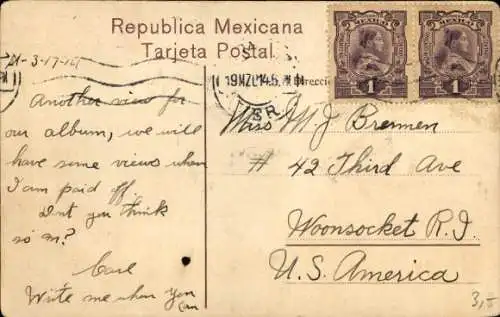 Republica Mexicana
Tarjeta Postal
MEXICO
1 1
MEXICO
1 1
-3-17-14
19 MZO 14
VER
Another view for
our album, we will
have some views when
I am paid off.
Dnt you think
so m?
Carl
Write me when you
can
Miss M J Brennen
# 42 Third Ave
Woonsocket R.I.
U.S. America
3,-